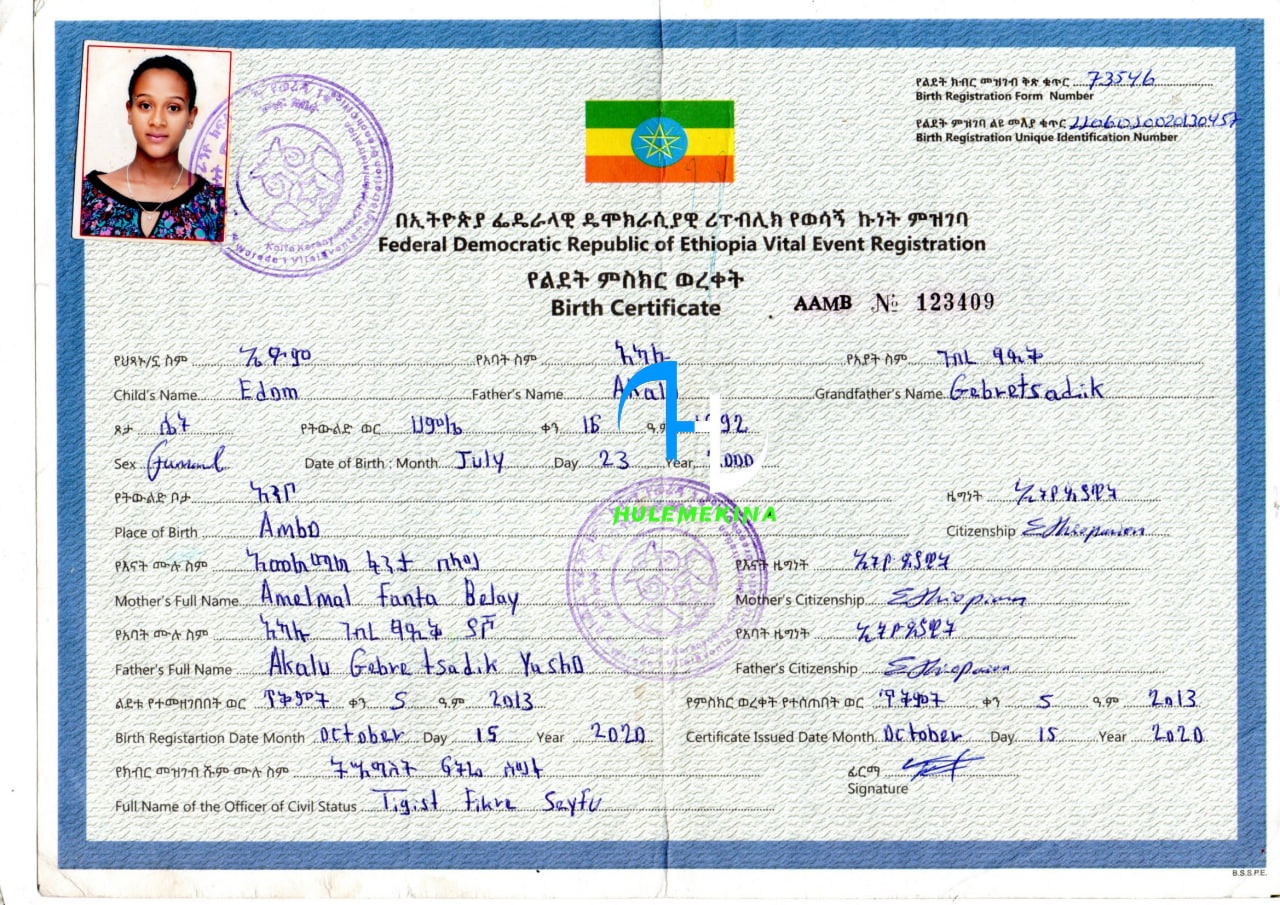 የልደት ክብር መዝገብ ቅጽ ቁጥር 73546
Birth Registration Form Number
የልደት ምዝገባ ልዩ መለያ ቁጥር
Birth Registration Unique Identification Number
በኢትዮጵያ ፌዴራላዊ ዴሞክራሲያዊ ሪፐብሊክ የወሳኝ ኩነት ምዝገባ
Federal Democratic Republic of Ethiopia Vital Event Registration
የልደት ምስክር ወረቀት
Birth Certificate
AAMB № 123409
የህጻኑ/ኗ ስም ኤዶም የአባት ስም አካሉ የአያት ስም ገብረ ፃዲቅ
Child's Name Edom Father's Name Akalu Grandfather's Name Gebretsadik
ጾታ ሴት የትውልድ ወር ሀምሌ ቀን 16 ዓ.ም 1992
Sex Date of Birth : Month July Day 23 Year 2000
የትውልድ ቦታ አምቦ ዜግነት ኢትዮጵያዊት
Place of Birth Ambo Citizenship Ethiopian
HULEMEKINA
የእናት ሙሉ ስም አመለማል ፋንታ በላይ የእናት ዜግነት ኢትዮጵያዊት
Mother's Full Name Amelmal Fanta Belay Mother's Citizenship Ethiopian
የአባት ሙሉ ስም አካሉ ገብረ ፃዲቅ ያሾ የአባት ዜግነት ኢትዮጵያዊ
Father's Full Name Akalu Gebretsadik Yasho Father's Citizenship Ethiopian
ልደቱ የተመዘገበበት ወር ጥቅምት ቀን 5 ዓ.ም 2013 የምስክር ወረቀት የተሰጠበት ወር ጥቅምት ቀን 5 ዓ.ም 2013
Birth Registartion Date Month October Day 15 Year 2020 Certificate Issued Date Month October Day 15 Year 2020
የክብር መዝገብ ሹም ሙሉ ስም ትዕግስት ፍቅሬ ሰይፉ ፊርማ
Full Name of the Officer of Civil Status Tigist Fikre Seyfu Signature
B.S.S.P.E.